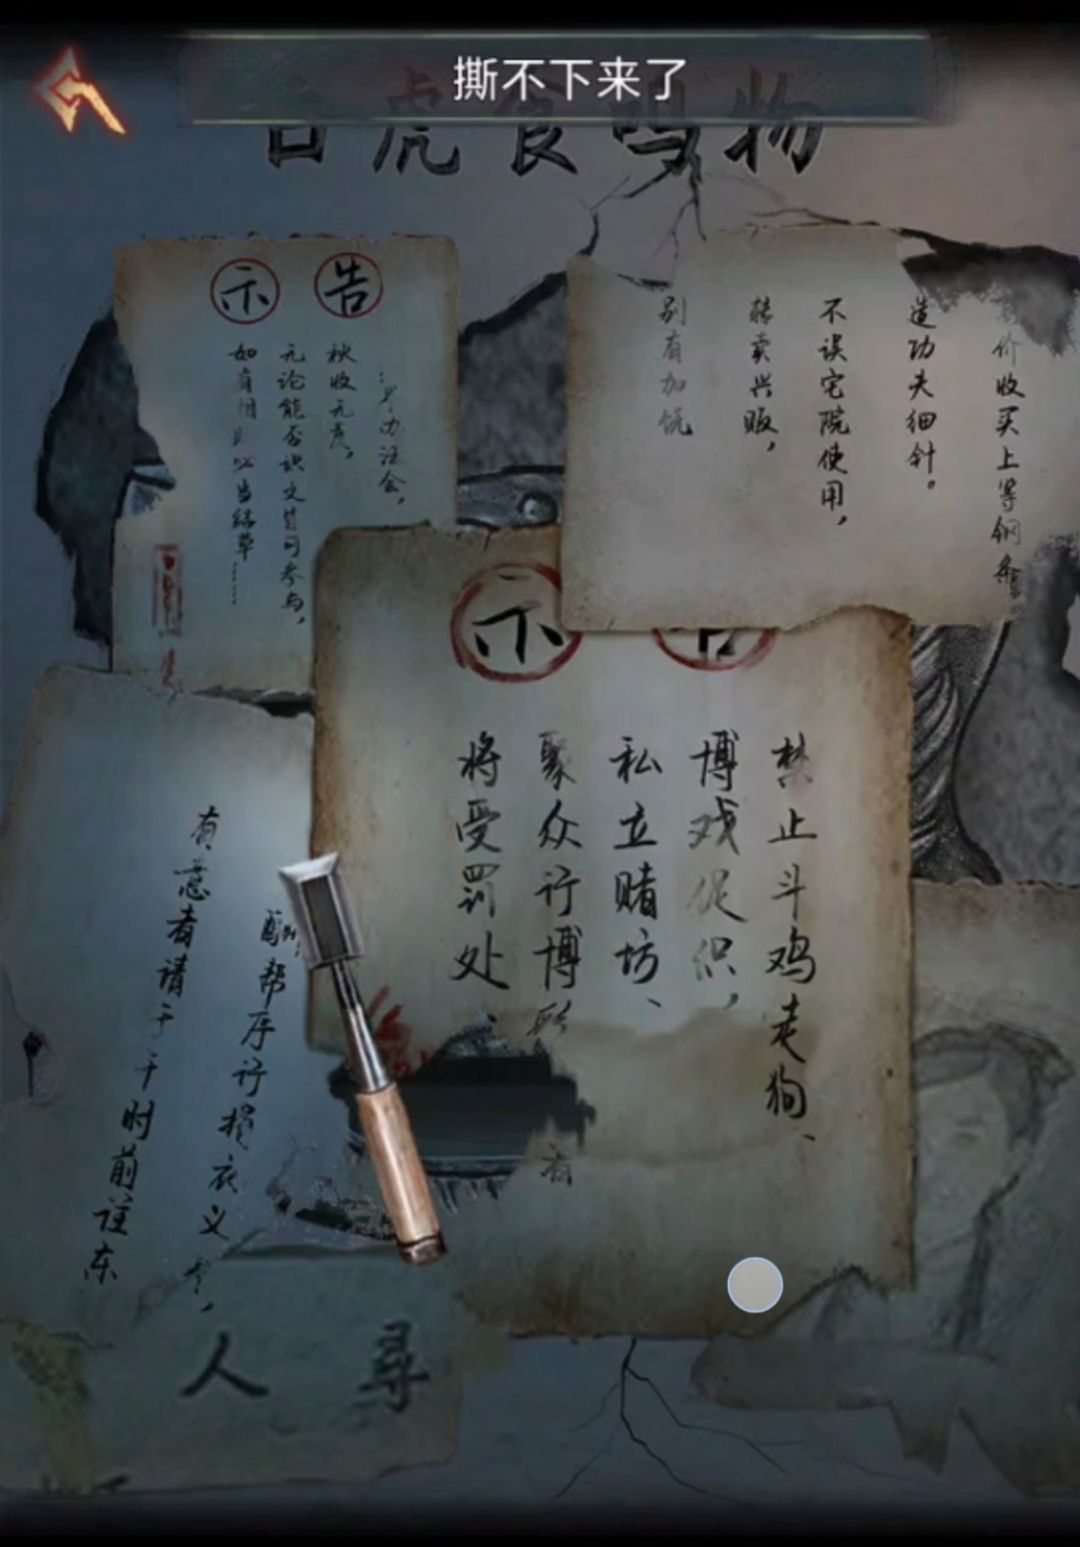 撕不下来了
虎食
物
告示
办法会，
秋收元度，
无论能否识文皆可参与，
当结草……
价收买上等钢
造功夫细针。
不误宅院使用，
转卖兴贩，
别有加饶
告示
禁止斗鸡走狗、
博戏促织，
私立赌坊、
聚众行博彩
者
将受罚处、
酬帮序行摸衣义
有意者请于
时前往东
寻人